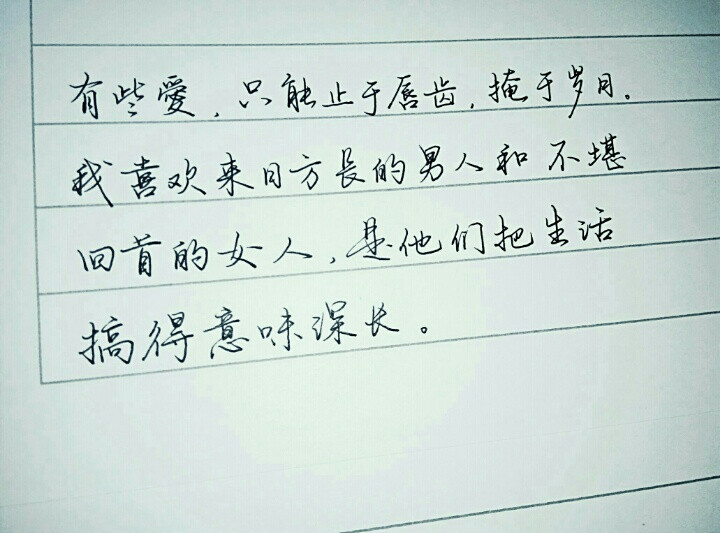 有些愛，只能止于唇齿，掩于岁月。
我喜欢来日方长的男人和不堪
回首的女人，是他们把生活
搞得意味深长。